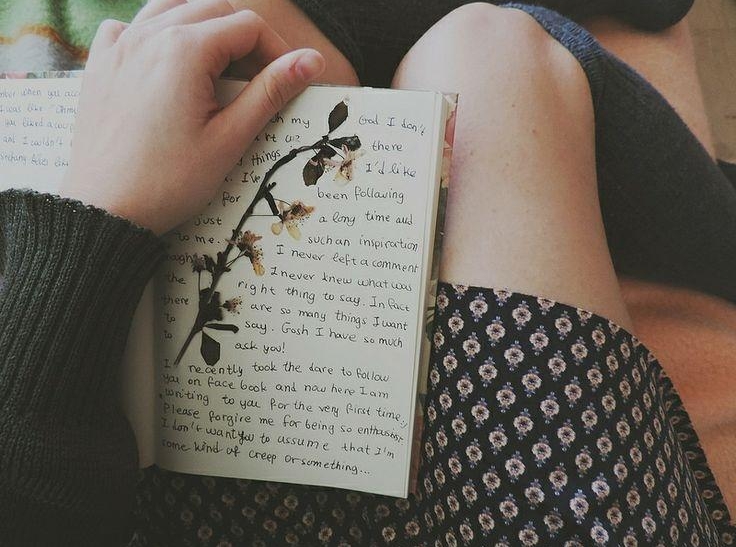 when you
I was like
you liked a
and I couldn't
my God I don't
there
things I'd like
I've been following
for
just a long time and
to me. such an inspiration
I never left a comment
I never knew what was
the right thing to say. In fact
there are so many things I want
to say. Gosh I have so much
to ask you!
I recently took the dare to follow
you on face book and now here I am
writing to you for the very first time
Please forgive me for being so
I don't want you to assume that I'm
some kind of creep or something...